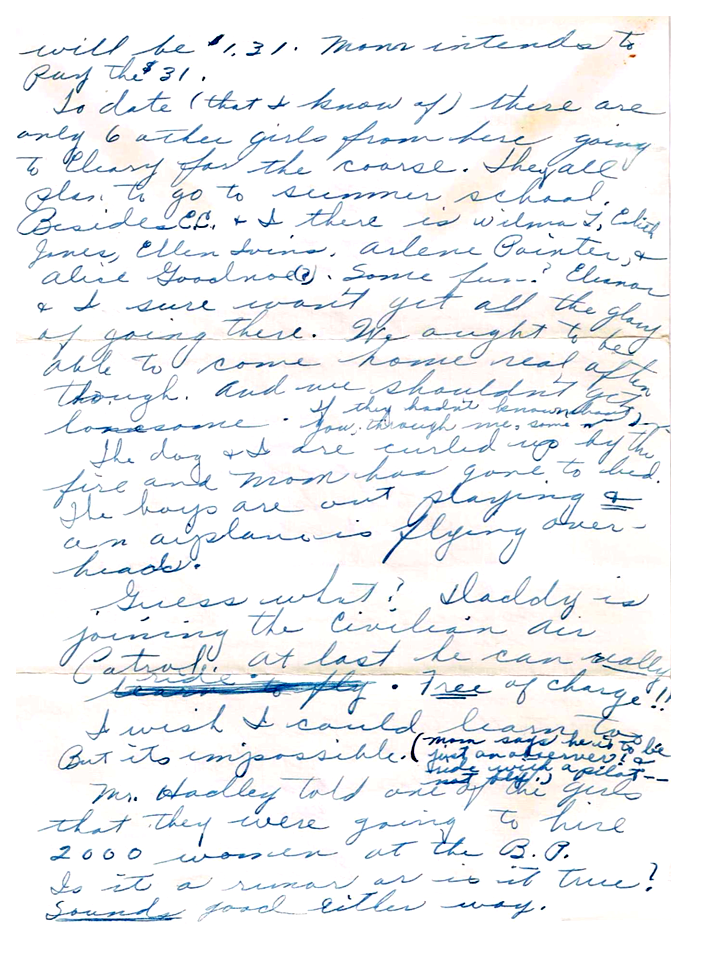 will be $1.31. Mom intends to
pay the $31.
To date (that I know of) there are
only 6 other girls from here going
to Cleary for the course. They all
plan to go to summer school.
Besides E.C. & I there is Wilma T, Edith
Jones, Ellen Ivins, Arlene Painter, &
Alice Goodnoe(?). Some fun? Eleanor
& I sure won't get all the glory
of going there. We ought to be
able to come home real often
though. And we shouldn't get
lonesome. If they hadn't known about
you, through me, some
The dog & I are curled up by the
fire and Mom has gone to bed.
The boys are out playing &
an airplane is flying over-
head.
Guess what? Daddy is
joining the Civilian Air
Patrol. At last he can really
ride
learn to fly. Free of charge!!
I wish I could learn to
But its impossible. (Mom says he is to be
just an observer! &
ride with a pilot—
not fly.)
Mr. Hadley told one of the girls
that they were going to hire
2000 women at the B.P.
Is it a rumor or is it true?
Sounds good either way.